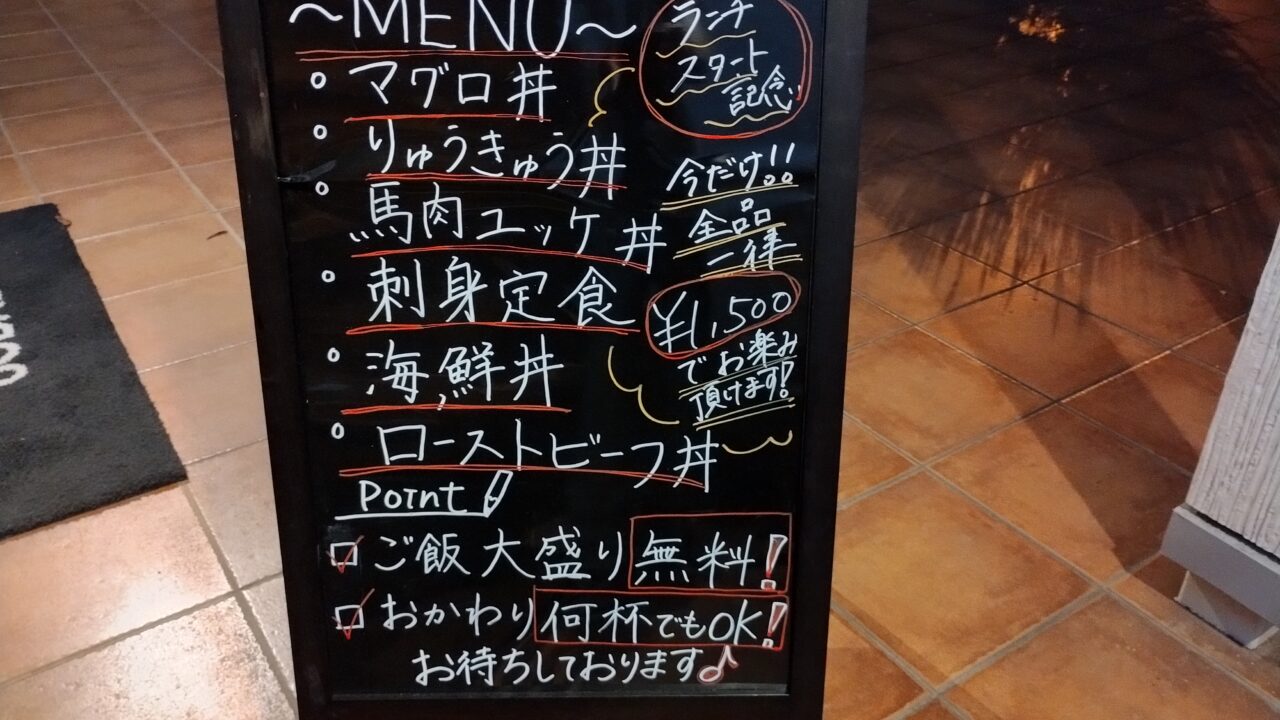 ～MENU～
マグロ丼
りゅうきゅう丼
馬肉ユッケ丼
刺身定食
海鮮丼
ローストビーフ丼
ランチ
スタート
記念
今だけ!!
全品
一律
¥1,500
でお楽み
頂けます!
Point
ご飯大盛り無料!
おかわり何杯でもOK!
お待ちしております♪